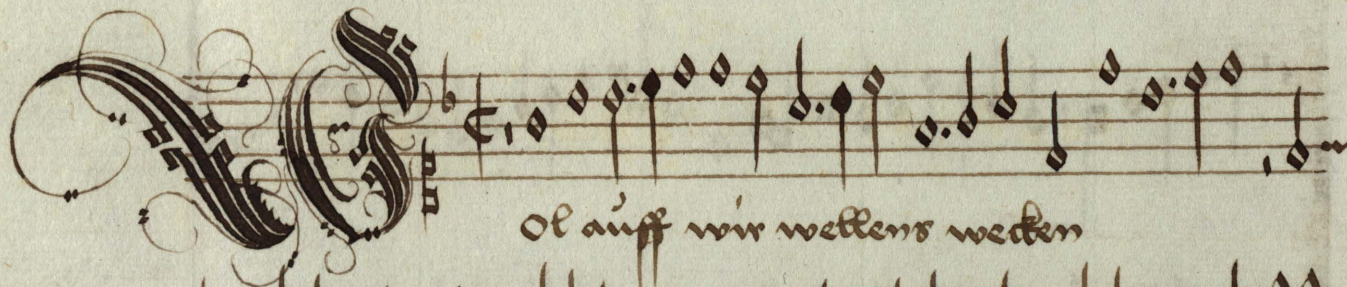 WOl auff wir wellens wecken